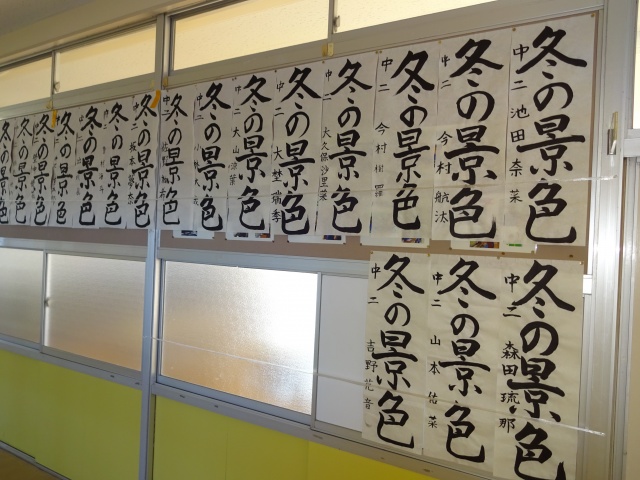 冬の景色
中二 池田奈菜
冬の景色
中二 今村航汰
冬の景色
中二 今村
冬の景色
中二 大久保沙里菜
冬の景色
中二 大埜瑞季
冬の景色
中二 大山
冬の景色
中二 小林
冬の景色
中二
冬の景色
中二 坂本
冬の景色
冬の景色
冬の景色
冬の景色
冬の景色
冬の景色
冬の景色
中二 森田琉那
冬の景色
中二 山本佑菜
冬の景色
中二 吉野花音